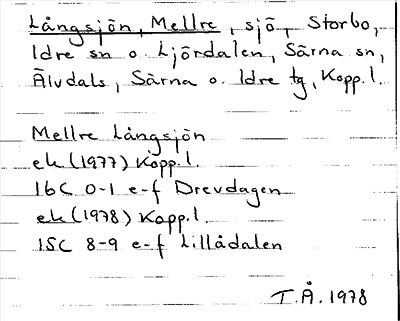 Långsjön, Mellre, sjö, Storbo,
Idre sn o. Ljördalen, Särna sn,
Älvdals, Särna o. Idre tg, Kopp. l.
Mellre Långsjön
ek (1977) Kopp. l.
16C 0-1 e-f Drevdagen
ek (1978) Kopp. l.
15C 8-9 e-f Lillådalen
T.Å. 1978